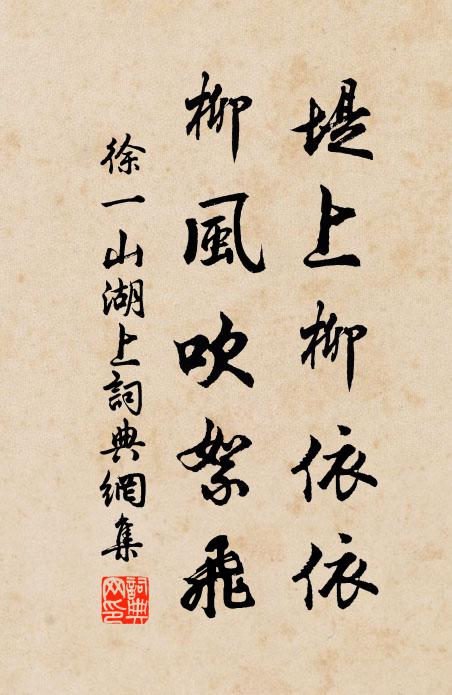 堤上柳依依
柳風吹絮飛
徐一山湖上詞典網集
詞典网印